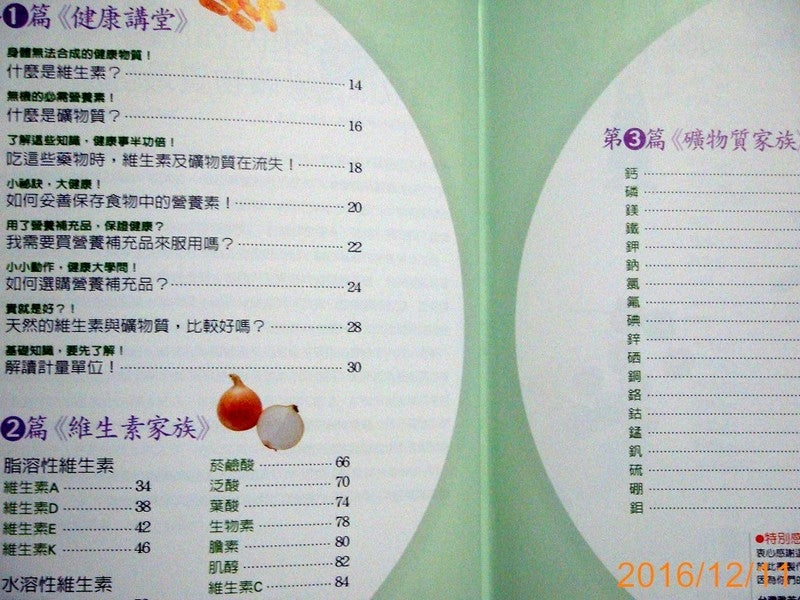 1篇《健康講堂》
身體無法合成的健康物質！
什麼是維生素？ 14
無機的必需營養素！
什麼是礦物質？ 16
了解這些知識，健康事半功倍！
吃這些藥物時，維生素及礦物質在流失！ 18
小祕訣，大健康！
如何妥善保存食物中的營養素！ 20
用了營養補充品，保證健康？
我需要買營養補充品來服用嗎？ 22
小小動作，健康大學問！
如何選購營養補充品？ 24
貴就是好？！
天然的維生素與礦物質，比較好嗎？ 28
基礎知識，要先了解！
解讀計量單位！ 30
2篇《維生素家族》
脂溶性維生素
維生素A 34
維生素D 38
維生素E 42
維生素K 46
水溶性維生素
菸鹼酸 66
泛酸 70
葉酸 74
生物素 78
膽素 80
肌醇 82
維生素C 84
第3篇《礦物質家族》
鈣
磷
鎂
鐵
鉀
鈉
氯
氟
碘
鋅
硒
銅
鉻
鈷
錳
釩
硫
硼
鉬
●特別感
衷心感謝
2016/12/11